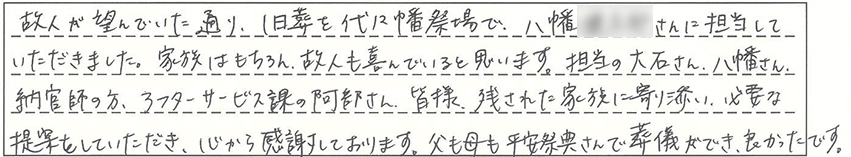 故人が望んでいた通り、1日葬を代々幡祭場で、八幡さんに担当して
いただきました。家族はもちろん、故人も喜んでいると思います。担当の大石さん、八幡さん、
納官師の方、アフターサービス課の阿部さん、皆様、残された家族に寄り添い、必要な
提案をしていただき、心から感謝しております。父も母も平安祭典さんで葬儀ができ、良かったです。